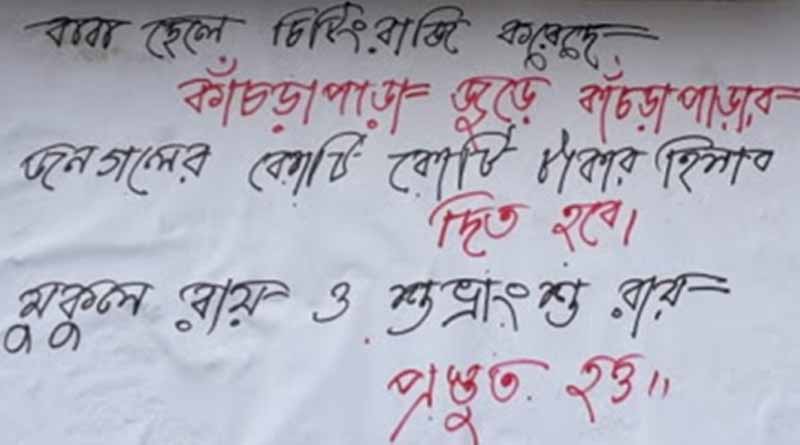 বাবা ছেলে চিটিংবাজি করেছে
কাঁচড়াপাড়া জুড়ে কাঁচড়াপাড়ার
জনগনের কোটি কোটি টাকার হিসাব
দিত হবে।
মুকুল রায় ও শুভ্রাংশু রায়
প্রস্তুত হও॥